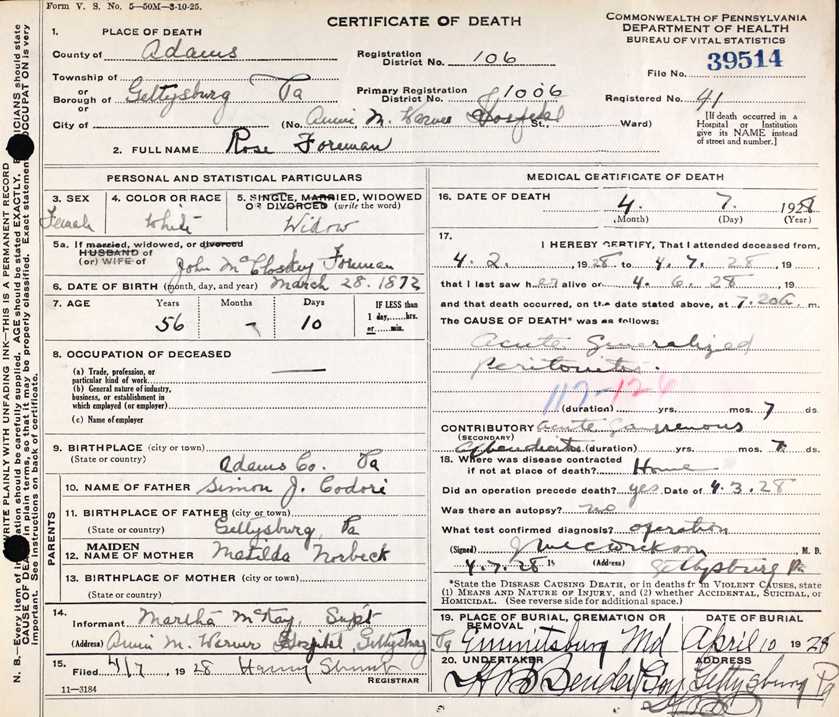 Form V. S. No. 5—50M—3-10-25.
CERTIFICATE OF DEATH
COMMONWEALTH OF PENNSYLVANIA
DEPARTMENT OF HEALTH
BUREAU OF VITAL STATISTICS
1. PLACE OF DEATH
County of Adams
Registration District No. 106
File No. 39514
Township of
or
Borough of Gettysburg Pa
Primary Registration District No. 1006
Registered No. 41
or
City of (No. Annie M. Warner Hospital St., Ward)
[If death occurred in a Hospital or Institution give its NAME instead of street and number.]
2. FULL NAME Rose Foreman
PERSONAL AND STATISTICAL PARTICULARS
3. SEX
Female
4. COLOR OR RACE
White
5. SINGLE, MARRIED, WIDOWED OR DIVORCED (write the word)
Widow
5a. If married, widowed, or divorced
HUSBAND of
(or) WIFE of John McCloskey Foreman
6. DATE OF BIRTH (month, day, and year) March 28. 1872
7. AGE Years Months Days IF LESS than
56 - 10 1 day,....hrs. or....min.
8. OCCUPATION OF DECEASED
(a) Trade, profession, or particular kind of work
(b) General nature of industry, business, or establishment in which employed (or employer)
(c) Name of employer
9. BIRTHPLACE (city or town)
(State or country) Adams Co. Pa
PARENTS
10. NAME OF FATHER Simon J. Codori
11. BIRTHPLACE OF FATHER (city or town)
(State or country) Gettysburg, Pa
12. MAIDEN NAME OF MOTHER Matilda Norbeck
13. BIRTHPLACE OF MOTHER (city or town)
(State or country)
14.
Informant Martha McKay, Supt
(Address) Annie M. Warner Hospital, Gettysburg Pa
15. Filed 4/7 1928 Harry
REGISTRAR
11—3184
MEDICAL CERTIFICATE OF DEATH
16. DATE OF DEATH 4. 7. 1928
(Month) (Day) (Year)
17. I HEREBY CERTIFY, That I attended deceased from
4. 2. , 1928 to 4. 7. 28 , 19
that I last saw her alive on 4. 6. 28 , 19
and that death occurred, on the date stated above, at 7.20 a m.
The CAUSE OF DEATH* was as follows:
Acute Generalized
Peritonitis.
117-126
(duration) yrs. mos. 7 ds.
CONTRIBUTORY Acute Gangrenous
(SECONDARY)
Appendicitis (duration) yrs. mos. 7 ds.
18. Where was disease contracted
if not at place of death? Home
Did an operation precede death? yes Date of 4.3.28
Was there an autopsy? no
What test confirmed diagnosis? operation
(Signed) M. D.
4.7.28 19 (Address) Gettysburg Pa
*State the DISEASE CAUSING DEATH, or in deaths from VIOLENT CAUSES, state
(1) MEANS AND NATURE OF INJURY, and (2) whether ACCIDENTAL, SUICIDAL, or
HOMICIDAL. (See reverse side for additional space.)
19. PLACE OF BURIAL, CREMATION OR REMOVAL
Emmitsburg Md
DATE OF BURIAL
April 10 1928
20. UNDERTAKER
H B Bender & Son
ADDRESS
Gettysburg Pa
HBB